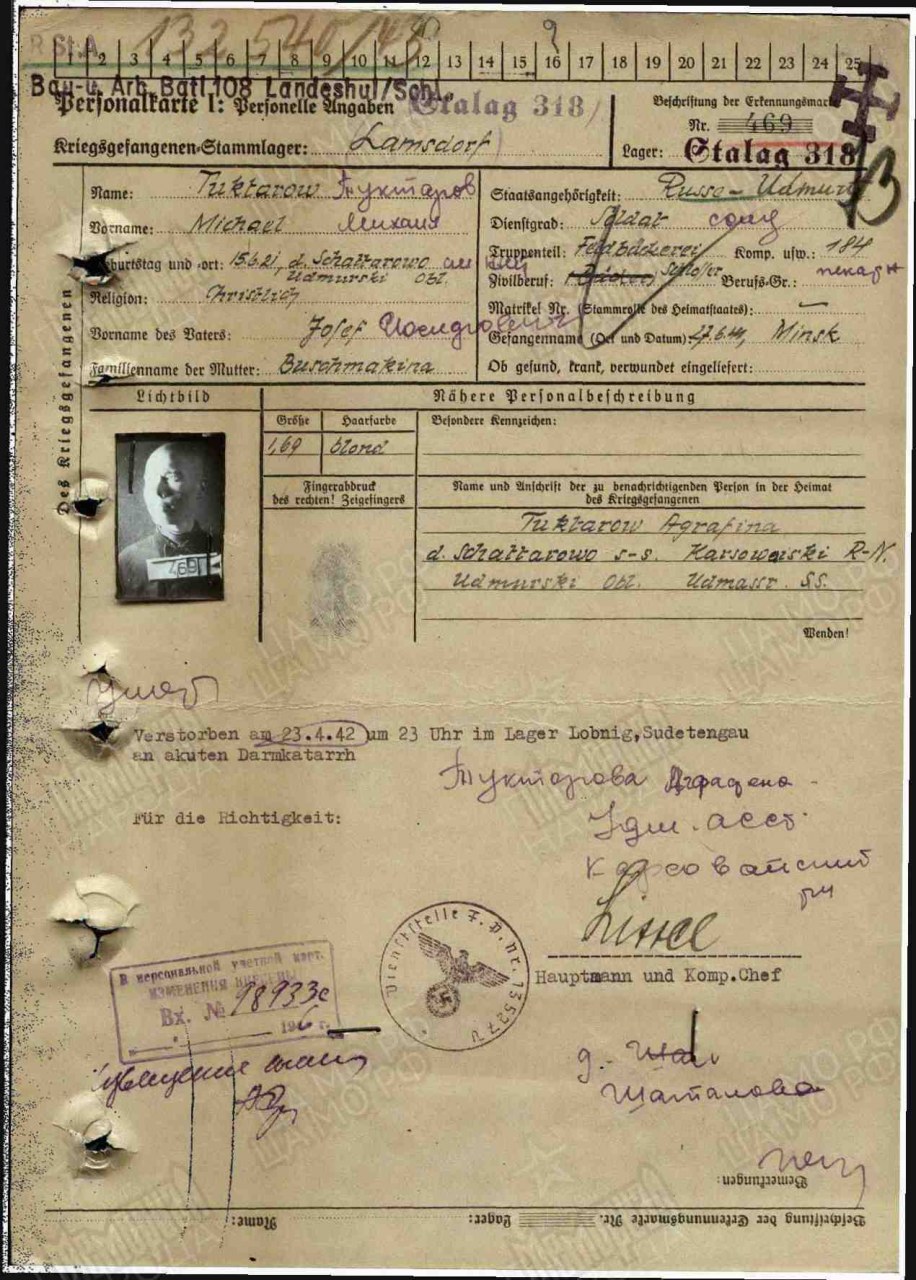 R.St.A. 132 540/43 9
1 2 3 4 5 6 7 8 9 10 11 12 13 14 15 16 17 18 19 20 21 22 23 24 25
Bau-u. Arb. Batl. 108 Landeshut/Schl.
Personalkarte I: Personelle Angaben Stalag 318/
Kriegsgefangenen-Stammlager: (Lamsdorf)
Beschriftung der Erkennungsmarke
Nr. 469
Lager: Stalag 318
Des Kriegsgefangenen
Name: Tuktarow Туктаров
Vorname: Michael Михаил
Geburtstag und -ort: 15.6.21, d. Schattarowo
Udmurski Obl.
Religion: Christlich
Vorname des Vaters: Josef
Familienname der Mutter: Buschmakina
Staatsangehörigkeit: Russe - Udmurt
Dienstgrad: Soldat солд
Truppenteil: Feldbäckerei Komp. usw.: 184
Zivilberuf: Schlosser Berufs-Gr.: пекарн
Matrikel Nr. (Stammrolle des Heimatstaates): —
Gefangennahme (Ort und Datum) Minsk
Ob gesund, krank, verwundet eingeliefert:
Lichtbild
Nähere Personalbeschreibung
Größe Haarfarbe Besondere Kennzeichen:
1,69 blond
Fingerabdruck
des rechten! Zeigefingers
Name und Anschrift der zu benachrichtigenden Person in der Heimat
des Kriegsgefangenen
469
Tuktarow Agrafina
d. Schattarowo s-s. Karsowaiski R-N.
Udmurski Obl. Udmassr. SS.
Wenden!
умер
Verstorben am 23.4.42 um 23 Uhr im Lager Lobnig,Sudetengau
an akuten Darmkatarrh
Туктарова Аграфена -
Удм. асср.
Карсовайский
рн
Für die Richtigkeit:
Hauptmann und Komp.Chef
Dienststelle F.P.Nr. 13527
В персональной учетной карт.
ИЗМЕНЕНИЯ ВНЕСЕНЫ
Вх. № 18933с
1946 г.
д. Шат
Шаталова
Bemerkungen:
Beschriftung der Erkennungsmarke Nr. Lager: Name: